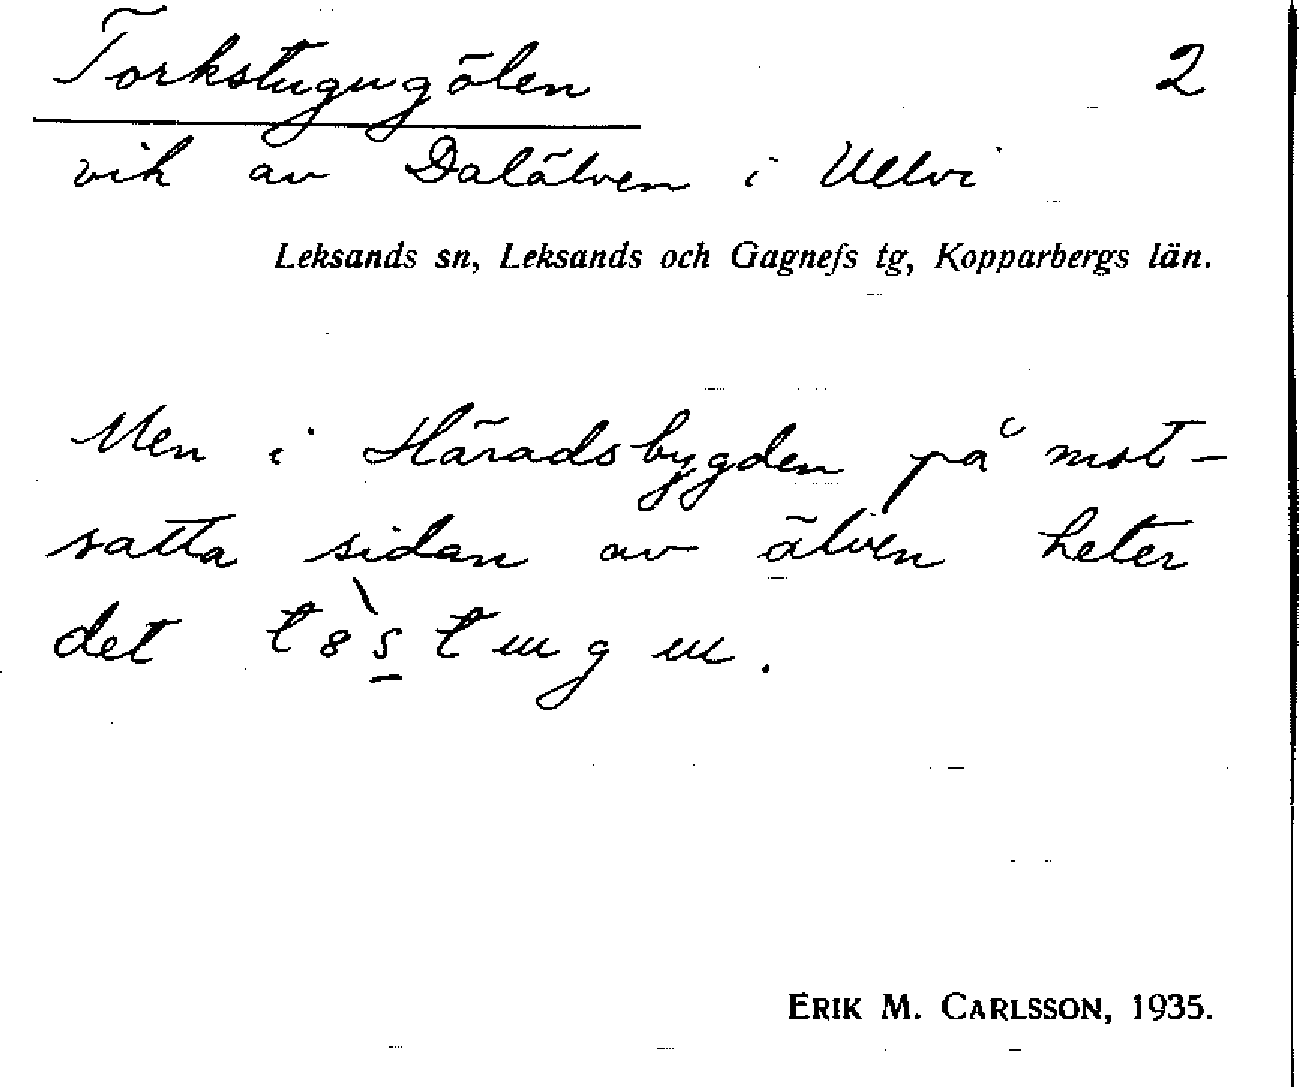 Torkstugugölen 2
vik av Dalälven i Ullvi
Leksands sn, Leksands och Gagnefs tg, Kopparbergs län.
Men i Häradsbygden på mot-
satta sidan av älven heter
det
ERIK M. CARLSSON, 1935.